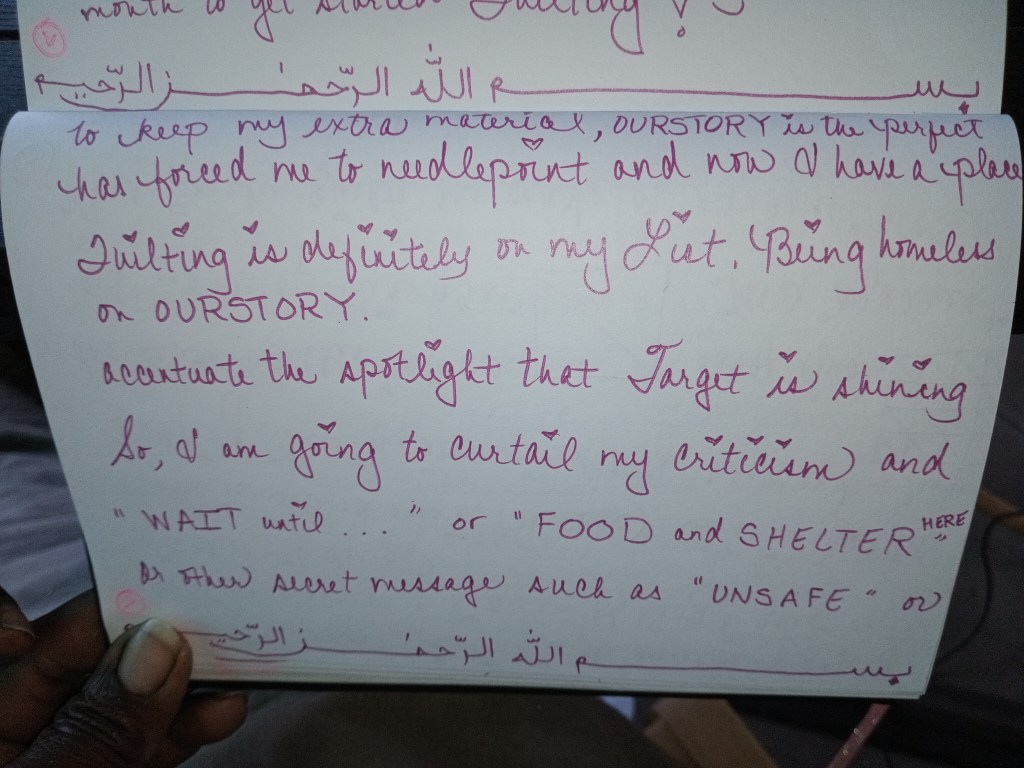 month to get started Quilting!
بسم الله الرّحمٰن الرّحيم
to keep my extra material, OURSTORY is the perfect
has forced me to needlepoint and now I have a place
Quilting is definitely on my List. Being homeless
on OURSTORY.
accentuate the spotlight that Target is shining
So, I am going to curtail my criticism and
"WAIT until ..." or "FOOD and SHELTER HERE"
or other secret message such as "UNSAFE" or
بسم الله الرّحمٰن الرّحيم